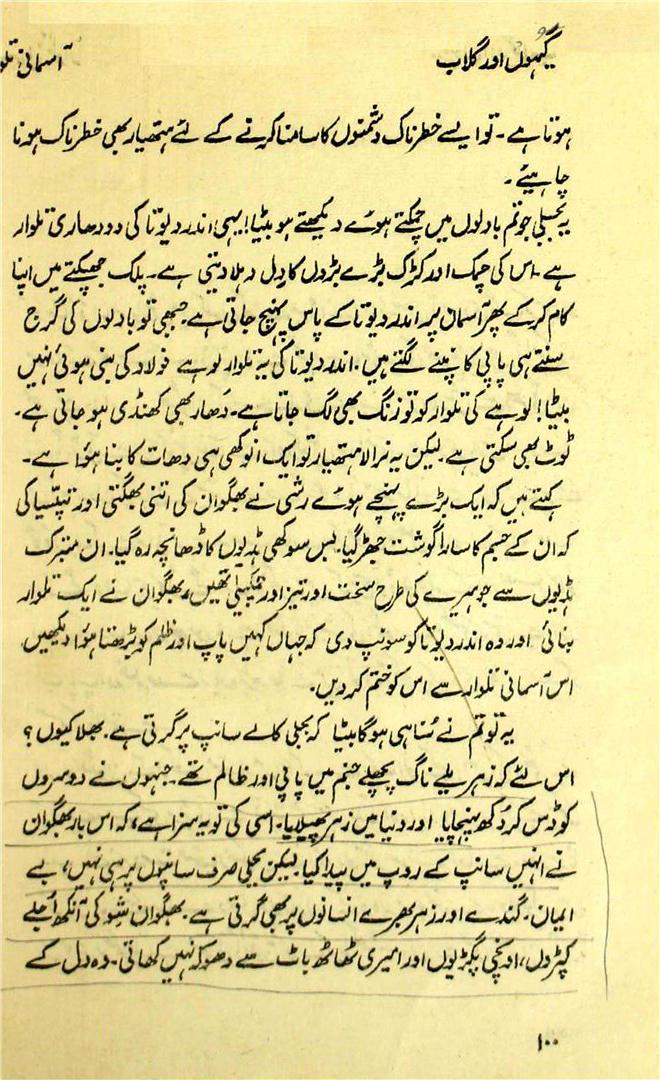 گیہوں اور گلاب
آسمانی تلوا
ہوتا ہے۔ تو ایسے خطرناک دشمنوں کا سامنا کرنے کے لئے ہتھیار بھی خطرناک ہونا
چاہیئے۔
یہ بجلی جو تم بادلوں میں چمکتے ہوئے دیکھتے ہو بیٹا! یہی اندر دیوتا کی دو دھاری تلوار
ہے۔ اس کی چمک اور کڑک بڑے بڑوں کا دِل دہلا دیتی ہے۔ پلک جھپکتے میں اپنا
کام کر کے پھر آسمان پر اندر دیوتا کے پاس پہنچ جاتی ہے۔ جبھی تو بادلوں کی گرج
سنتے ہی پاپی کانپنے لگتے ہیں۔ اندر دیوتا کی یہ تلوار لوہے فولاد کی بنی ہوئی نہیں
بیٹا! لوہے کی تلوار کو تو زنگ بھی لگ جاتا ہے۔ دھار بھی کھنڈی ہو جاتی ہے۔
ٹوٹ بھی سکتی ہے۔ لیکن یہ نرالا ہتھیار تو ایک انوکھی ہی دھات کا بنا ہوا ہے۔
کہتے ہیں کہ ایک بڑے پہنچے ہوئے رشی نے بھگوان کی اتنی بھگتی اور تپسیا کی
کہ ان کے جسم کا سارا گوشت جھڑ گیا۔ بس سوکھی ہڈیوں کا ڈھانچہ رہ گیا۔ ان متبرک
ہڈیوں سے جو ہیرے کی طرح سخت اور تیز اور چمکیلی تھیں، بھگوان نے ایک تلوار
بنائی اور وہ اندر دیوتا کو سونپ دی کہ جہاں کہیں پاپ اور ظلم کو بڑھتا ہوا دیکھیں
اس آسمانی تلوار سے اس کو ختم کر دیں۔
یہ تو تم نے سُنا ہی ہوگا بیٹا کہ بجلی کالے سانپ پر گرتی ہے۔ بھلا کیوں؟
اس لئے کہ زہریلے ناگ پچھلے جنم میں پاپی اور ظالم تھے۔ جنہوں نے دوسروں
کو ڈس کر دُکھ پہنچایا اور دنیا میں زہر پھیلایا۔ اسی کی تو یہ سزا ہے، کہ اس بار بھگوان
نے انہیں سانپ کے روپ میں پیدا کیا۔ لیکن بجلی صرف سانپوں پر ہی نہیں، بے
ایمان۔ گندے اور زہر بھرے انسانوں پر بھی گرتی ہے۔ بھگوان شو کی آنکھ اُجلے
کپڑوں، اونچی پگڑیوں اور امیری ٹھاٹھ باٹ سے دھوکہ نہیں کھاتی۔ وہ دل کے
۱۰۰